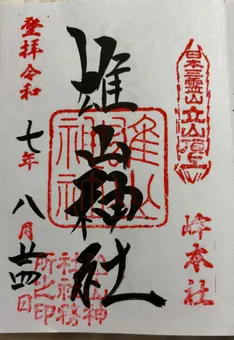 日本三霊山立山頂上
峰本社
雄山神社
雄山
神社
登拝令和
七年
八月
廿四日
雄山神
社社務
所之印